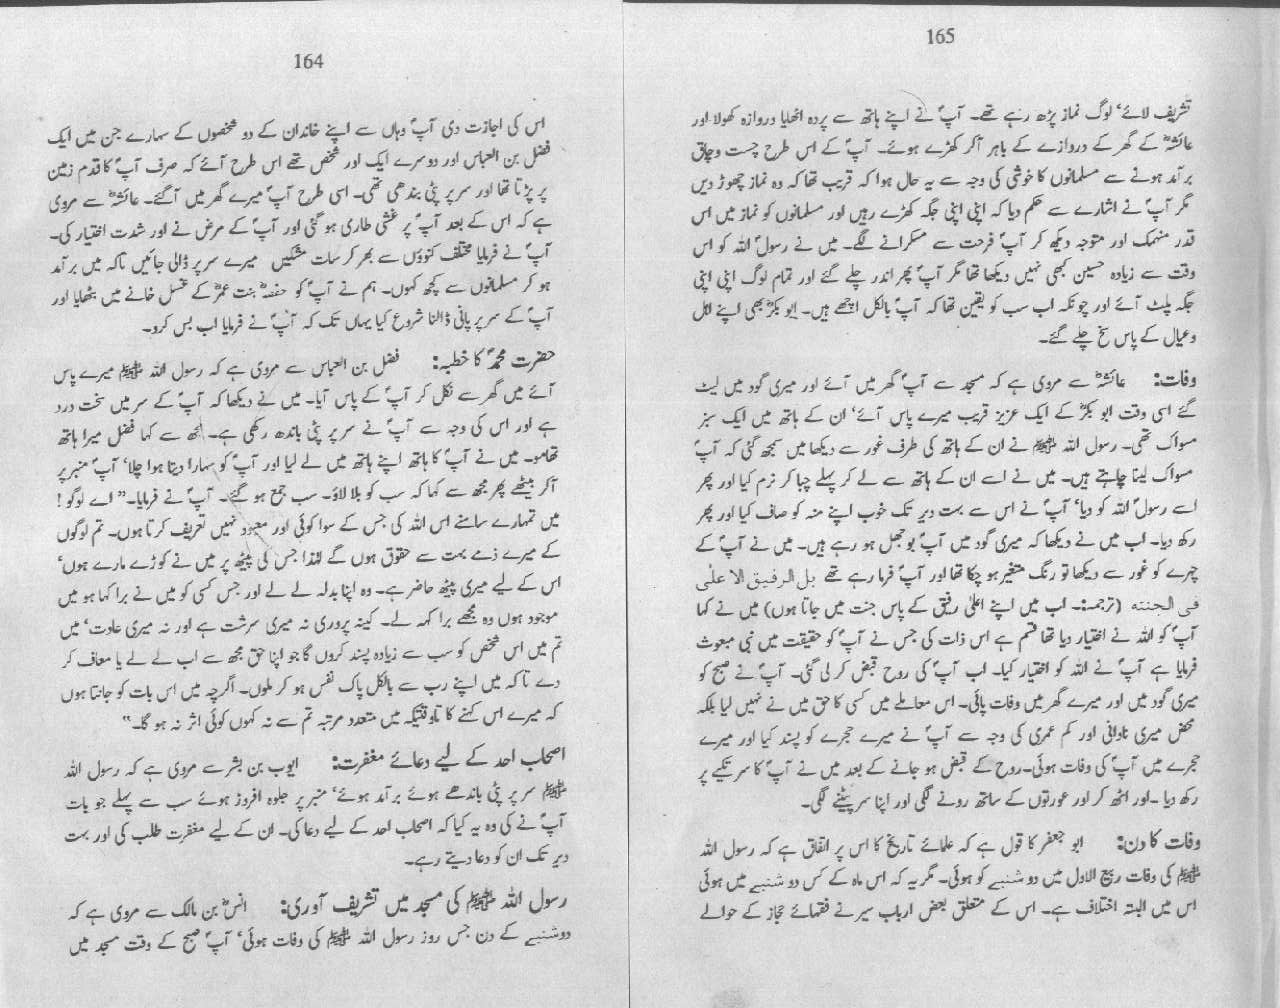 164
اس کی اجازت دی آپؐ وہاں سے اپنے خاندان کے دو شخصوں کے سہارے جن میں ایک
فضل بن العباس اور دوسرے ایک اور شخص تھے اس طرح آئے کہ صرف آپؐ کا قدم زمین
پر پڑتا تھا اور سر پر پٹی بندھی تھی۔ اسی طرح آپؐ میرے گھر میں آگئے۔ عائشہؓ سے مروی
ہے کہ اس کے بعد آپؐ پر غشی طاری ہو گئی اور آپؐ کے مرض نے اور شدت اختیار کی۔
آپؐ نے فرمایا مختلف کنوؤں سے بھر کر سات مشکیں میرے سر پر ڈالی جائیں تاکہ میں برآمد
ہو کر مسلمانوں سے کچھ کہوں۔ ہم نے آپؐ کو حفصہؓ بنت عمرؓ کے غسل خانے میں بٹھایا اور
آپؐ کے سر پر پانی ڈالنا شروع کیا یہاں تک کہ آپؐ نے فرمایا اب بس کرو۔
حضرت محمدؐ کا خطبہ: فضل بن العباس سے مروی ہے کہ رسول اللہ ﷺ میرے پاس
آئے میں گھر سے نکل کر آپؐ کے پاس آیا۔ میں نے دیکھا کہ آپؐ کے سر میں سخت درد
ہے اور اس کی وجہ سے آپؐ نے سر پر پٹی باندھ رکھی ہے۔ مجھ سے کہا فضل میرا ہاتھ
تھامو۔ میں نے آپؐ کا ہاتھ اپنے ہاتھ میں لے لیا اور آپؐ کو سہارا دیتا ہوا چلا‘ آپؐ منبر پر
آکر بیٹھے پھر مجھ سے کہا کہ سب کو بلا لاؤ۔ سب جمع ہو گئے۔ آپؐ نے فرمایا۔” اے لوگو !
میں تمہارے سامنے اس اللہ کی جس کے سوا کوئی اور معبود نہیں تعریف کرتا ہوں۔ تم لوگوں
کے میرے ذمے بہت سے حقوق ہوں گے لہٰذا جس کی پیٹھ پر میں نے کوڑے مارے ہوں‘
اس کے لیے میری پیٹھ حاضر ہے۔ وہ اپنا بدلہ لے لے اور جس کسی کو میں نے برا کہا ہو میں
موجود ہوں وہ مجھے برا کہہ لے۔ کینہ پروری نہ میری سرشت ہے اور نہ میری عادت‘ میں
تم میں اس شخص کو سب سے زیادہ پسند کروں گا جو اپنا حق مجھ سے اب لے لے یا معاف کر
دے تاکہ میں اپنے رب سے بالکل پاک نفس ہو کر ملوں۔ اگرچہ میں اس بات کو جانتا ہوں
کہ میرے اس کہنے کا تاوقتیکہ میں متعدد مرتبہ تم سے نہ کہوں کوئی اثر نہ ہو گا۔“
اصحاب احد کے لیے دعائے مغفرت: ایوب بن بشر سے مروی ہے کہ رسول اللہ
ﷺ سر پر پٹی باندھے ہوئے برآمد ہوئے‘ منبر پر جلوہ افروز ہوئے سب سے پہلے جو بات
آپؐ نے کی وہ یہ کیا کہ اصحاب احد کے لیے دعا کی۔ ان کے لیے مغفرت طلب کی اور بہت
دیر تک ان کو دعا دیتے رہے۔
رسول اللہ ﷺ کی مسجد میں تشریف آوری: انسؓ بن مالک سے مروی ہے کہ
دوشنبے کے دن جس روز رسول اللہ ﷺ کی وفات ہوئی‘ آپؐ صبح کے وقت مسجد میں
165
تشریف لائے‘ لوگ نماز پڑھ رہے تھے۔ آپؐ نے اپنے ہاتھ سے پردہ اٹھایا دروازہ کھولا اور
عائشہؓ کے گھر کے دروازے کے باہر آکر کھڑے ہوئے۔ آپؐ کے اس طرح چست وچاق
برآمد ہونے سے مسلمانوں کا خوشی کی وجہ سے یہ حال ہوا کہ قریب تھا کہ وہ نماز چھوڑ دیں
مگر آپؐ نے اشارے سے حکم دیا کہ اپنی اپنی جگہ کھڑے رہیں اور مسلمانوں کو نماز میں اس
قدر منہمک اور متوجہ دیکھ کر آپؐ فرحت سے مسکرانے لگے۔ میں نے رسولؐ اللہ کو اس
وقت سے زیادہ حسین کبھی نہیں دیکھا تھا مگر آپؐ پھر اندر چلے گئے اور تمام لوگ اپنی اپنی
جگہ پلٹ آئے اور چونکہ اب سب کو یقین تھا کہ آپؐ بالکل اچھے ہیں۔ ابو بکرؓ بھی اپنے اہل
وعیال کے پاس سخ چلے گئے۔
وفات: عائشہؓ سے مروی ہے کہ مسجد سے آپؐ گھر میں آئے اور میری گود میں لیٹ
گئے اسی وقت ابو بکرؓ کے ایک عزیز قریب میرے پاس آئے‘ ان کے ہاتھ میں ایک سبز
مسواک تھی۔ رسول اللہ ﷺ نے ان کے ہاتھ کی طرف غور سے دیکھا میں سمجھ گئی کہ آپؐ
مسواک لینا چاہتے ہیں۔ میں نے اسے ان کے ہاتھ سے لے کر پہلے چبا کر نرم کیا اور پھر
اسے رسولؐ اللہ کو دیا‘ آپؐ نے اس سے بہت دیر تک خوب اپنے منہ کو صاف کیا اور پھر
رکھ دیا۔ اب میں نے دیکھا کہ میری گود میں آپؐ بوجھل ہو رہے ہیں۔ میں نے آپؐ کے
چہرے کو غور سے دیکھا تو رنگ متغیر ہو چکا تھا اور آپؐ فرما رہے تھے بل الرفیق الاعلٰی
فی الجنتہ (ترجمہ:۔ اب میں اپنے اعلیٰ رفیق کے پاس جنت میں جاتا ہوں) میں نے کہا
آپؐ کو اللہ نے اختیار دیا تھا قسم ہے اس ذات کی جس نے آپؐ کو حقیقت میں نبی مبعوث
فرمایا ہے آپؐ نے اللہ کو اختیار کیا۔ اب آپؐ کی روح قبض کر لی گئی۔ آپؐ نے صبح کو
میری گود میں اور میرے گھر میں وفات پائی۔ اس معاملے میں کسی کا حق میں نے نہیں لیا بلکہ
محض میری نادانی اور کم عمری کی وجہ سے آپؐ نے میرے حجرے کو پسند کیا اور میرے
حجرے میں آپؐ کی وفات ہوئی۔روح کے قبض ہو جانے کے بعد میں نے آپؐ کا سر تکیے پر
رکھ دیا ۔اور اٹھ کر اور عورتوں کے ساتھ رونے لگی اور اپنا سر پیٹنے لگی۔
وفات کا دن: ابو جعفر کا قول ہے کہ علمائے تاریخ کا اس پر اتفاق ہے کہ رسول اللہ
ﷺ کی وفات ربیع الاول میں دو شنبے کو ہوئی۔ مگر یہ کہ اس ماہ کے کس دو شنبے میں ہوئی
اس میں البتہ اختلاف ہے۔ اس کے متعلق بعض ارباب سیر نے فقہائے حجاز کے حوالے